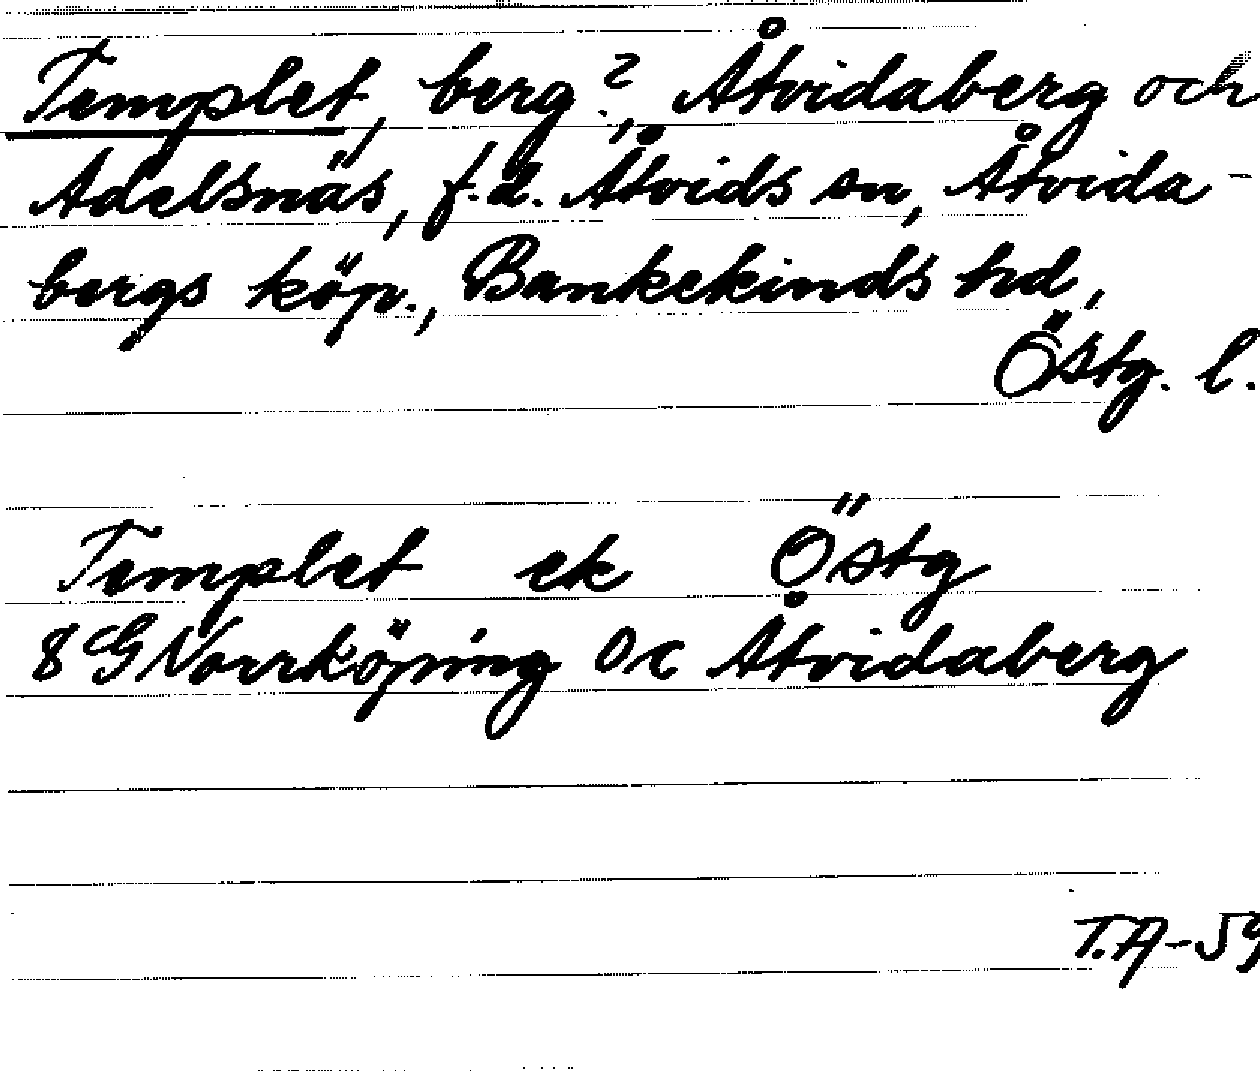 Templet, berg?, Åtvidaberg och
Adelsnäs, f.d. Åtvids sn, Åtvida-
bergs köp., Bankekinds hd,
Östg. l.
Templet ek Östg
8G Norrköping Oc Åtvidaberg
T.A-59